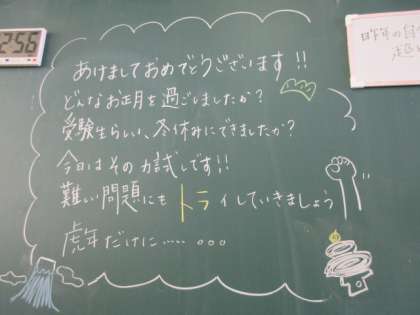 2:56
昨年の自
あけましておめでとうございます!!
どんなお正月を過ごしましたか?
受験生らしい、冬休みにできましたか?
今日はその力試しです!!
難しい問題にもトライしていきましょう
虎年だけに……。。。